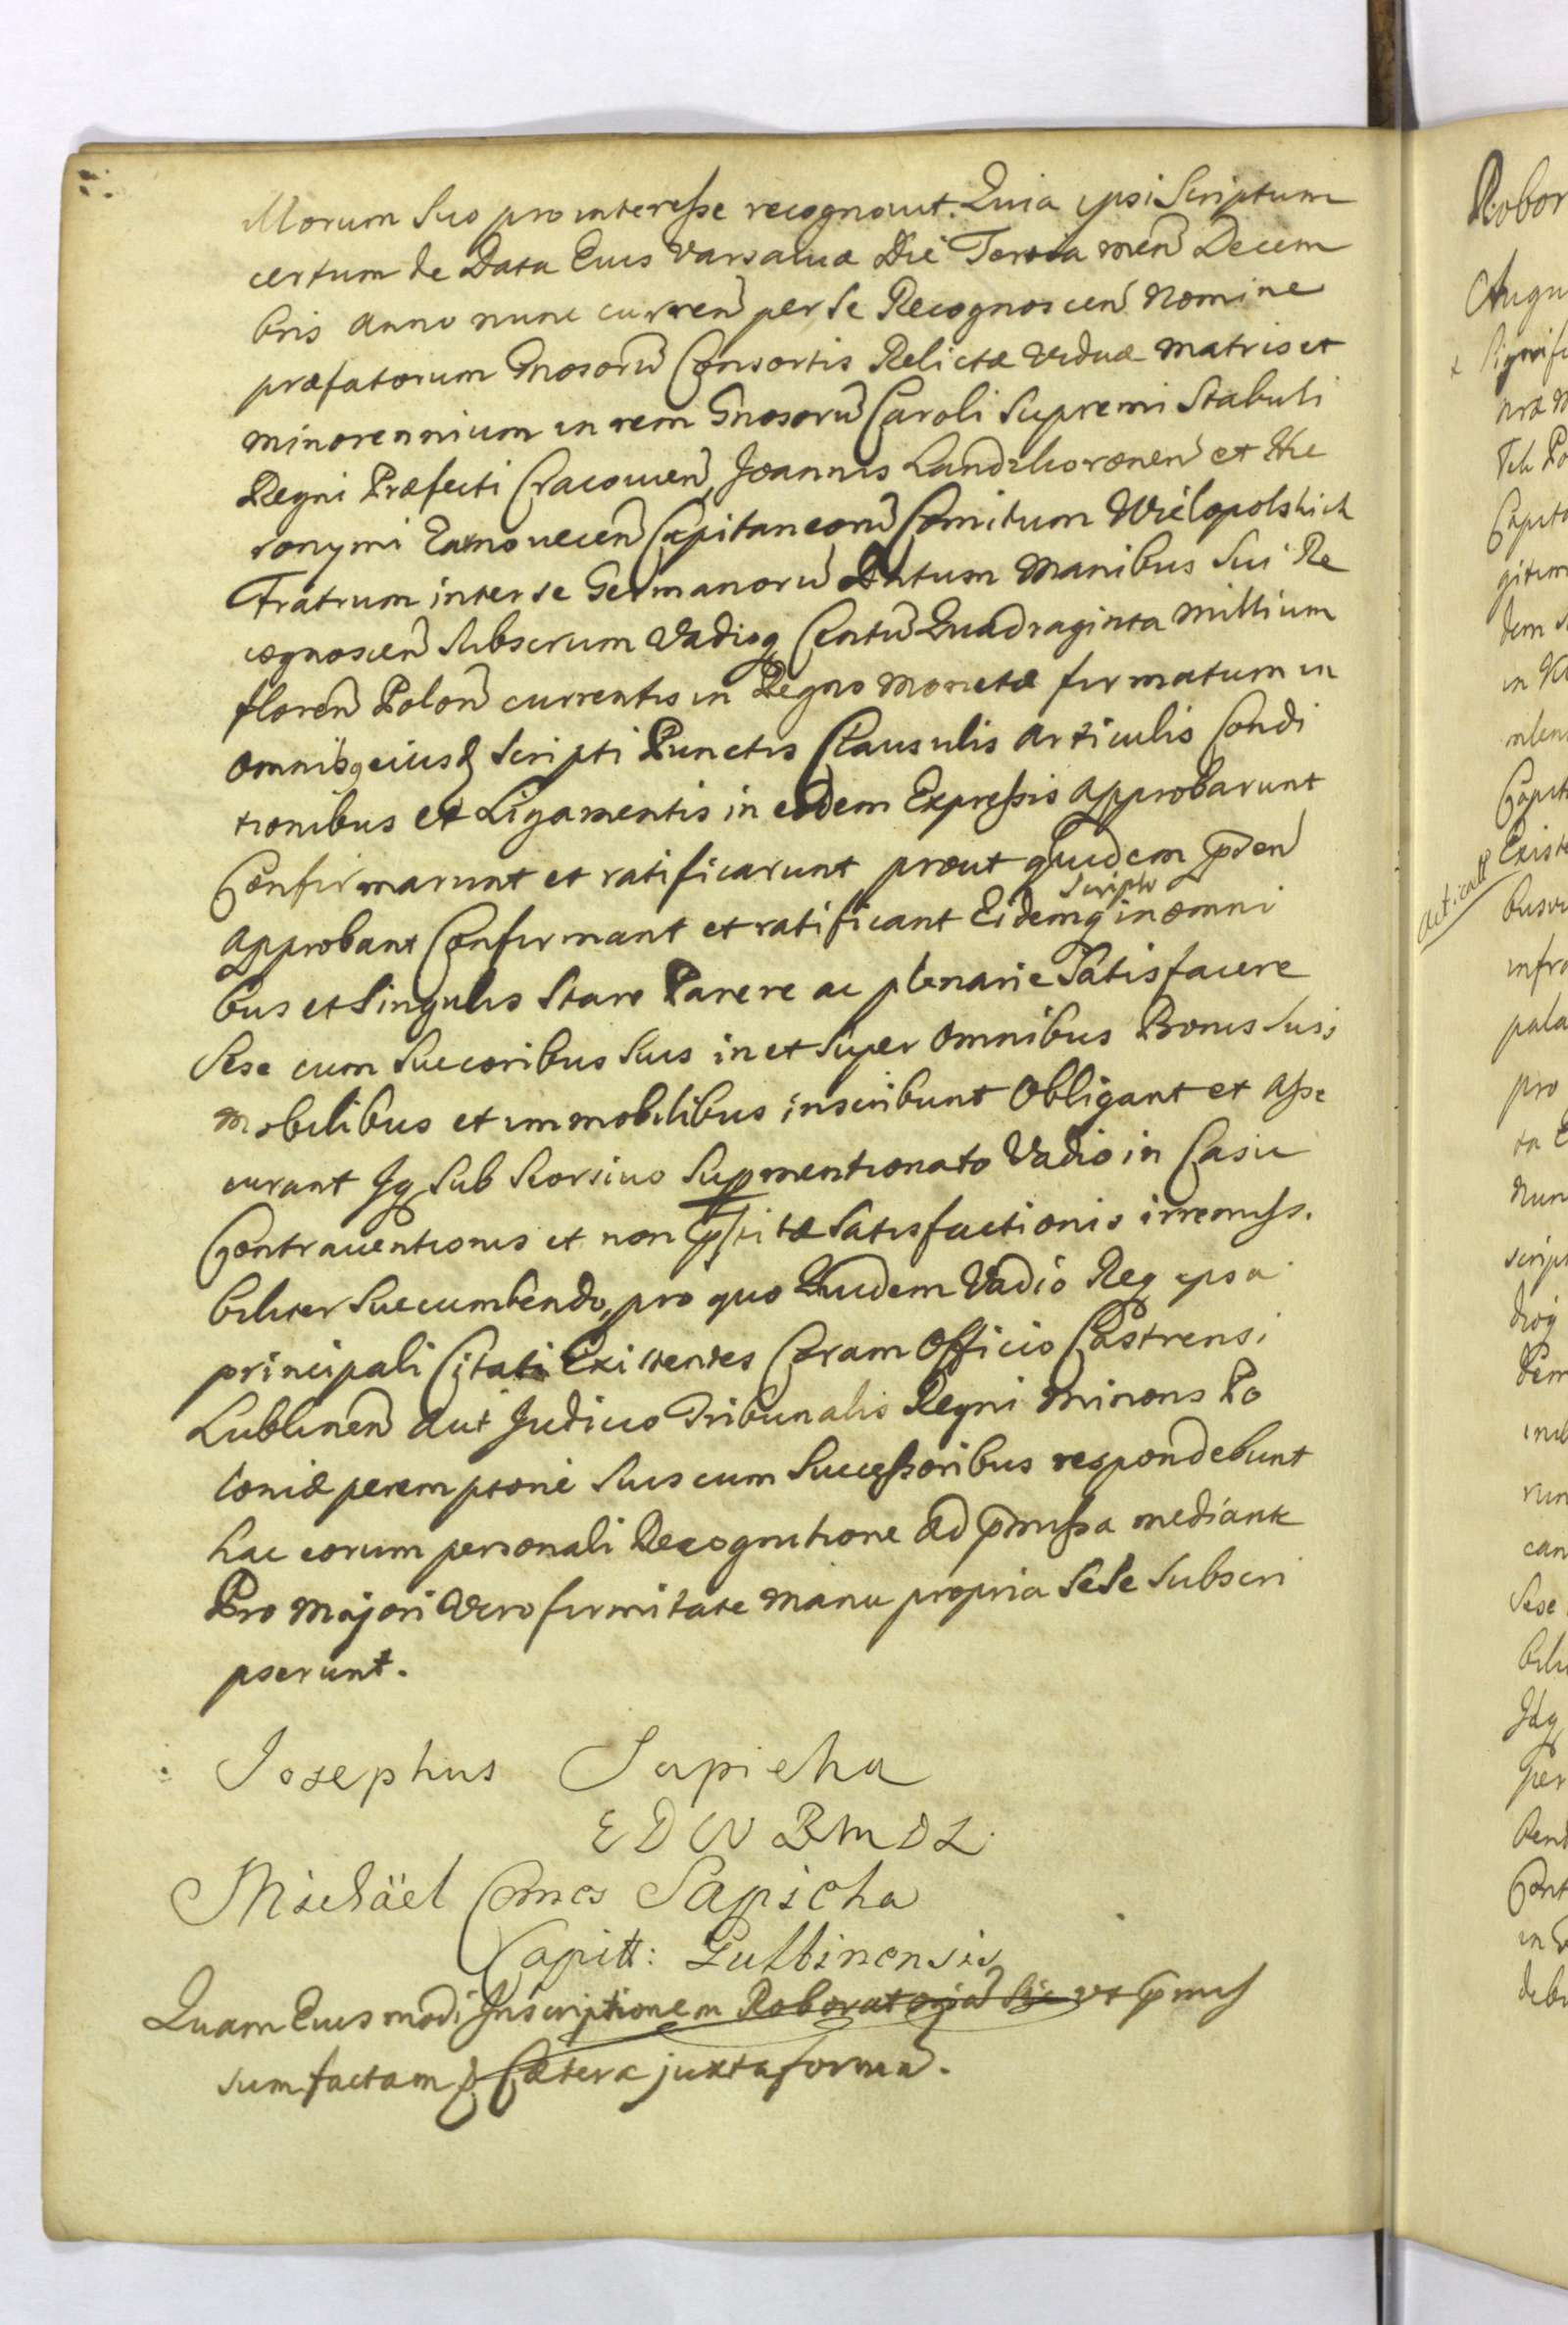 Morum suo pro interesse recognovit. Quia ipsi Scriptum
certum de Data Eius Varsaviæ Die Tertia men̄ Decem
bris anno nunc curren̄ per se Recognoscen̄ Nomine
præfatorum Gnosorū Consortis Relictæ Viduæ Matris et
minorennium in rem Gnosorū Caroli Supremi Stabuli
Regni Præfecti Cracovien̄, Joannis Landzkoronen̄ et Hie
ronymi Capitaneorū Comitum Wielopolskich
Fratrum inter se Germanorū Datum Manibus Sui Re
cognoscen̄ Subscrum Vadioq Centū Quadraginta Millium
floren̄ Polon̄ currentis in Regno Monetæ firmatum in
omnibq eiusd Scripti Punctis Clausulis Articulis Condi
tionibus et Ligamentis in eodem Expressis approbarunt
Confirmarunt et ratificarunt prout quidem p̄den̄
approbant Confirmant et ratificant Eidemq Scripto in omni
bus et Singulis Stare Parere ac plenarie Satisfacere
Sese cum Succoribus Suis in et Super omnibus Bonis Suis
mobilibus et immobilibus inscribunt Obligant et asse
curant Iq Sub Seorsivo Supmentionato Vadio in Casu
Contraventionis et non p̄stitæ Satisfactionis irremissi
biliter Succumbendo, pro quo Quidem Vadio Req ipsa
principali Citati Existentes Coram Officio Castrensi
Lublinen̄ aut Judicio Tribunalis Regni Minoris Po
loniæ peremptorie Suis cum Successoribus respondebunt
hac eorum personali Recognitione ad p̄missa mediante
Pro Majori Vero firmitate Manu propria Sese Subscri
pserunt.
Josephus Sapieha
E D W B M D L
Michäel Comes Sapieha
Capitt: Lublinensis
Quam Eiusmodi Inscriptionem Roboratoriā Sic ut p̄mis
sum factam & Cætera juxta formā.
Robor
Augu
Signif
Capita
gitim
dem
in
Capit
Existe
infra
pala
pro
Nun
script
can
Sese
Per
Cont
in
debu